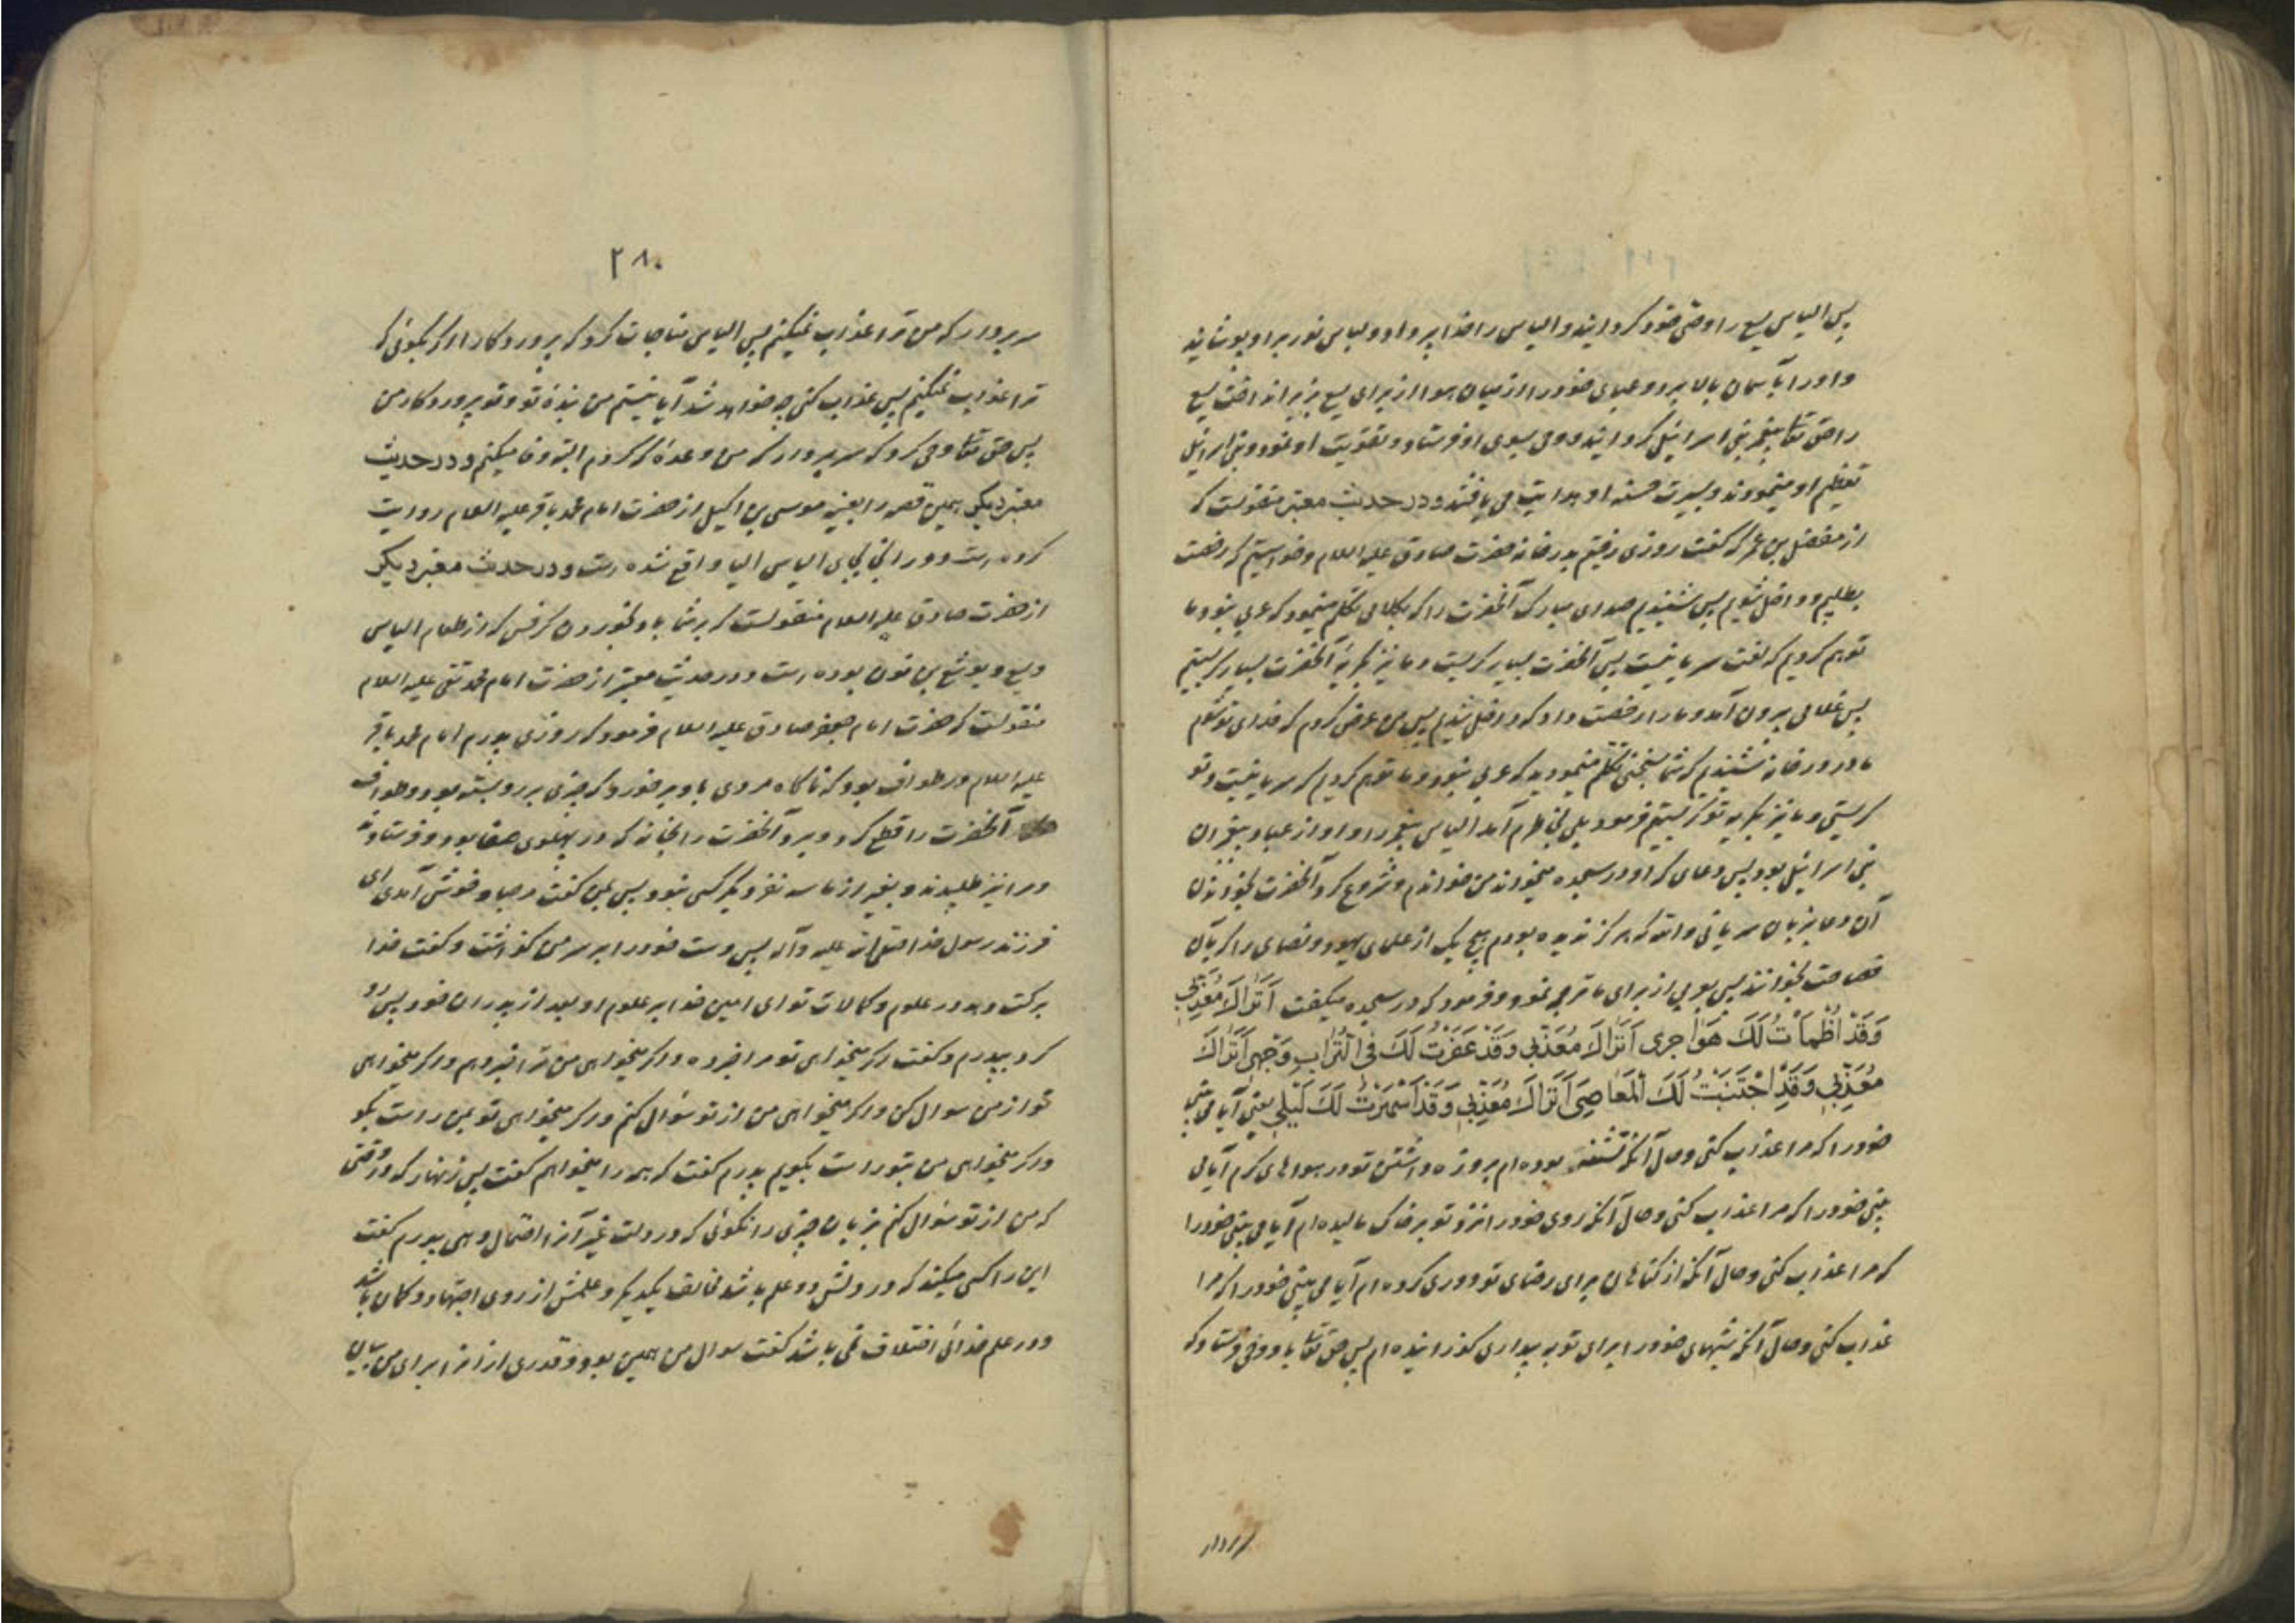 پس الیاس یسع را وصی خود گردانید و الیاس را خدا پر داد و لباس نور بر او پوشانید
و او را بآسمان بالا برد و عبای خود را از میان هوا از برای یسع بزیر انداخت یسع
را حق تعا پیغمبر بنی اسرائیل گردانید و وحی بسوی او فرستاد و تقویت او نمود و بنی اسرائیل
تعظیم او مینمودند و بسیرت حسنه او هدایت می یافتند و در حدیث معتبر منقولست که
از مفضل بن عمر که گفت روزی رفتیم بدر خانه حضرت صادق علیه السلام و خواستیم که رخصت
بطلبیم و داخل شویم پس شنیدیم صدای مبارک آنحضرت را که بکلامی تکلم مینمود که عربی نبود و ما
توهم کردیم که لغت سریانیست پس آنحضرت بسیار گریست و ما نیز بگریه آنحضرت بسیار گریستیم
پس غلامی بیرون آمد و ما را رخصت داد که داخل شدیم پس من عرض کردم که فدای تو شوم
ما در در خانه شنیدیم که شما بسخنی تکلم مینمودید که عربی نبود و ما توهم کردیم که سریانیست و تو
گریستی و ما نیز بگریه تو گریستیم فرمود بلی بخاطرم آمد الیاس پیغمبر را و او از عباد پیغمبران
بنی اسرائیل بود پس دعای که او در سجده میخواند من خواندم و شروع کرد آنحضرت بخواندن
آن دعا بزبان سریانی والله که هرگز ندیده بودم هیچ یک از علمای یهود و نصاری را که بآن
فصاحت بخوانند پس بعربی از برای ما ترجمه نمود و فرمود که در سجده میگفت اَتُرَاكَ مُعَذِّبِی
وَقَدْ اَظْمَاْتُ لَكَ هَوَاجِرِی اَتُرَاكَ مُعَذِّبِی وَقَدْ عَفَّرْتُ لَكَ فِی التُّرَابِ وَجْهِی اَتُرَاكَ
مُعَذِّبِی وَقَدِ اجْتَنَبْتُ لَكَ الْمَعَاصِیَ اَتُرَاكَ مُعَذِّبِی وَقَدْ اَسْهَرْتُ لَكَ لَیْلِی یعنی آیا می بینی
خود را که مرا عذاب کنی و حال آنکه تشنه بوده ام بروزه داشتن تو در هواهای گرم آیا می
بینی خود را که مرا عذاب کنی و حال آنکه روی خود را نزد تو بر خاک مالیده ام آیا می بینی خود را
که مرا عذاب کنی و حال آنکه از گناهان برای رضای تو دوری کرده ام آیا می بینی خود را که مرا
عذاب کنی و حال آنکه شبهای خود را برای تو به بیداری گذرانیده ام پس حق تعا باو وحی فرستاد که
سر بردار
۲۸۰
سر بردار که من ترا عذاب نمیکنم پس الیاس مناجات کرد که پروردگارا اگر بگوئی که
ترا عذاب نمیکنم پس عذاب کنی چه خواهد شد آیا نیستم من بنده تو و تو پروردگار من
پس حق تعا وحی کرد که سر بردار که من وعده که کردم البته وفا میکنم و در حدیث
معتبر دیگر همین قصه را بعینه موسی بن اکیل از حضرت امام محمد باقر علیه السلام روایت
کرده است و در انی بجای الیاس الیا واقع شده است و در حدیث معتبر دیگر
از حضرت صادق علیه السلام منقولست که بر شما باد بخوردن کرفس که از طعام الیاس
و یسع و یوشع بن نون بوده است و در حدیث معتبر از حضرت امام محمد تقی علیه السلام
منقولست که حضرت امام جعفر صادق علیه السلام فرمود که روزی پدرم امام محمد باقر
علیه السلام در طواف بود که ناگاه مردی باو برخورد که چیزی بر رو بسته بود و طواف
آنحضرت را قطع کرد و برد آنحضرت را بخانه که در پهلوی صفا بود و فرستاده
و مرا نیز طلبیدند و بغیر از ما سه نفر دیگر کسی نبود پس بمن گفت مرحبا و خوش آمدی ای
فرزند رسول خدا صلی الله علیه و آله پس دست خود را بر سر من گذاشت و گفت خدا
برکت دهد در علوم و کمالات تو ای امین خدا بر علوم او بعد از پدران خود پس رو
کرد بپدرم و گفت اگر میخواهی تو مرا خبر ده و اگر میخواهی من ترا خبر دهم و اگر میخواهی
تو از من سوال کن و اگر میخواهی من از تو سؤال کنم و اگر میخواهی تو بمن راست بگو
و اگر میخواهی من بتو راست بگویم پدرم گفت که همه را میخواهم گفت پس زنهار که در وقتی
که من از تو سؤال کنم بزبان چیزی را نگوئی که در دلت غیر آنرا احتمال دهی پدرم گفت
این را کسی میکند که در دلش دو علم باشد مخالف یکدیگر و علمش از روی اجتهاد و گمان باشد
و در علم خدائی اختلاف نمی باشد گفت سوال من همین بود و قدری از انرا برای من بیان